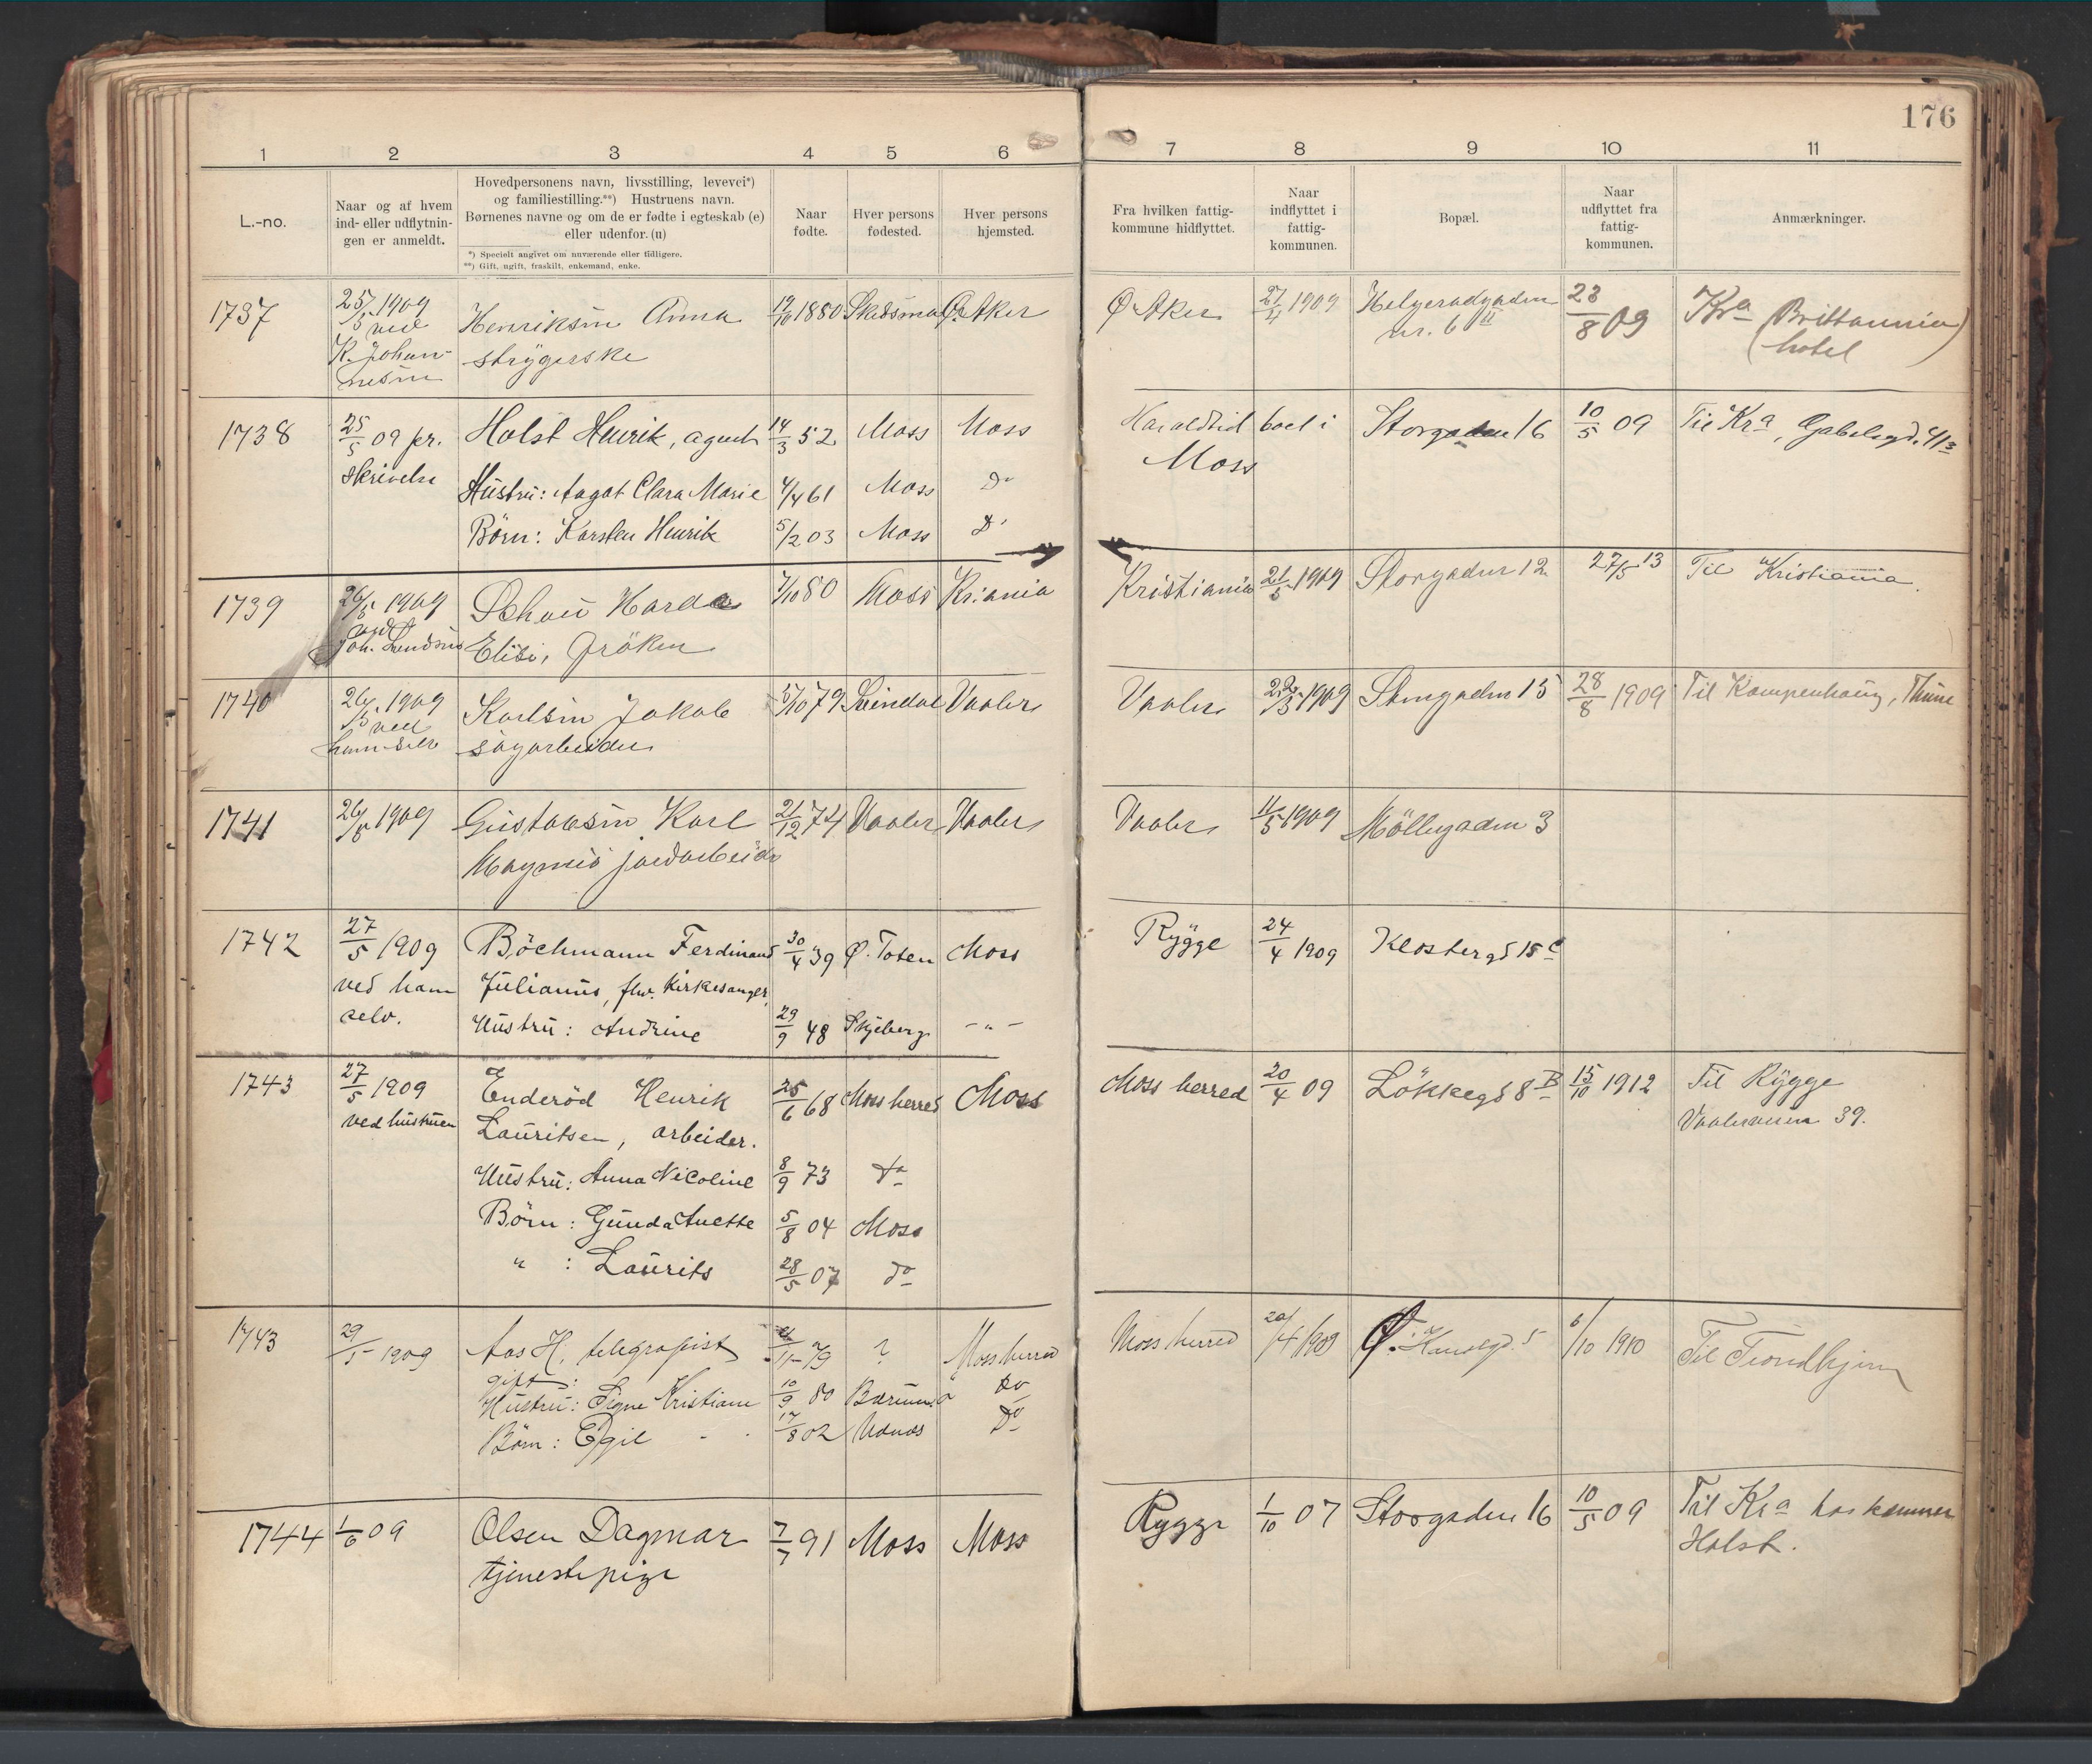 176
1 2 3 4 5 6 7 8 9 10 11
L.-no.
Naar og af hvem
ind- eller udflytnin-
gen er anmeldt.
Hovedpersonens navn, livsstilling, levevei*)
og familiestilling.**) Hustruens navn.
Børnenes navne og om de er fødte i egteskab (e)
eller udenfor. (u)
*) Specielt angivet om nuværende eller tidligere.
**) Gift, ugift, fraskilt, enkemand, enke.
Naar
fødte.
Hver persons
fødested.
Hver persons
hjemsted.
Fra hvilken fattig-
kommune hidflyttet.
Naar
indflyttet i
fattig-
kommunen.
Bopæl.
Naar
udflyttet fra
fattig-
kommunen.
Anmærkninger.
1737 25/5 1909 Henriksen Anna 19/10 1880 Skedsmo Ø. Aker Ø Aker 27/4 1909 Helgerødgaden 23/8 09 Kra (Brittannia
ved nr. 6 II hotel)
K. Johan- strygerske
nesen
1738 25/5 09 pr. Holst Henrik, agent 14/3 52 Moss Moss Har altid boet i Storgaden 16 10/5 09 Til Kra, Gabelsgd. 41
skrivelse Moss
Hustru: Aagot Clara Marie 4/4 61 Moss Do
Børn: Karsten Henrik 5/2 03 Moss Do
1739 26/5 1909 Schou Harda 7/10 80 Moss Kr.ania Kristiania 21/5 1909 Storgaden 12 27/5 13 Til Kristiania.
ved
Joh. Lundsen Elise, frøken
1740 26/5 1909 Karlsen Jakob 5/10 79 Svindal Vaaler Vaaler 22/3 1909 Stengaden 15 28/8 1909 Til Kampenhaug, Thune
ved
ham selv sagarbeider
1741 26/5 1909 Gustavsen Karl 21/12 74 Vaaler Vaaler Vaaler 11/5 1909 Möllegaden 3
Magnus jordarbeider
1742 27/5 1909 Böchmann Ferdinand 30/4 39 Ø. Toten Moss Rygge 24/4 1909 Klostergd 15 c
ved ham Julianus, fhv. Kirkesanger,
selv. Hustru: Andrine 29/9 48 Skjeberg - " -
1743 27/5 1909 Enderöd Henrik 25/6 68 Moss herred Moss Moss herred 20/4 09 Løkkegd 8 B 15/10 1912 Til Rygge
ved hustruen Lauritsen, arbeider. Vaalerveien 39.
Hustru: Anna Nicoline 8/9 73 do
Börn: Gunda Anette 5/8 04 Moss
" : Laurits 28/5 07 do
1743 29/5 1909 Aas H. telegrafist 21/11 79 ? Moss herred Moss herred 20/4 1909 Ø. Kanalgd. 5 6/10 1910 Til Trondhjem
gift:
Hustru: Signe Kristiane 10/9 80 Bærum Do
Börn: Egil - - 17/8 02 Do
1744 1/6 09 Olsen Dagmar 7/7 91 Moss Moss Rygge 1/10 07 Storgaden 16 10/5 09 Til Kra hos
tjenestepige Holst.